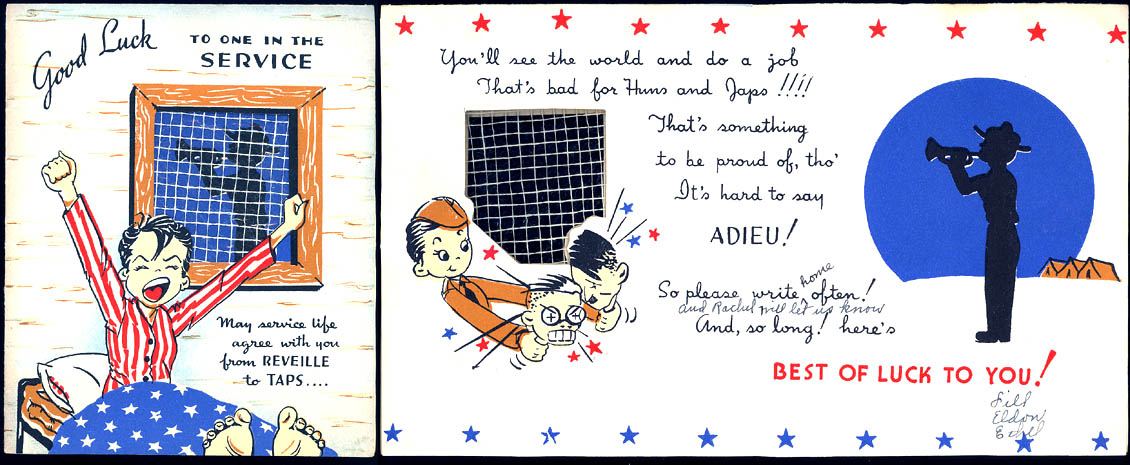 Good Luck
TO ONE IN THE
SERVICE
May service life
agree with you
from REVEILLE
to TAPS....
You'll see the world and do a job
That's bad for Huns and Japs !!!!
That's something
to be proud of, tho'
It's hard to say
ADIEU!
home
So please write ^ often!
and Rachel will let us know
And, so long! here's
BEST OF LUCK TO YOU!
Eldon